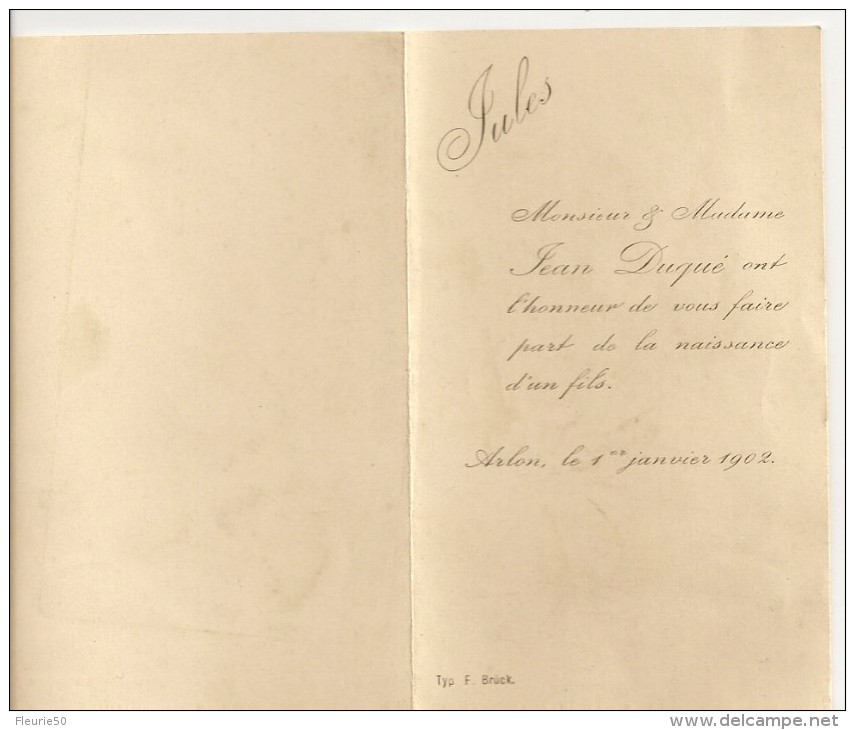 Jules
Monsieur & Madame
Jean Duqué ont
l'honneur de vous faire
part de la naissance
d'un fils.
Arlon, le 1er janvier 1902.
Typ F. Brück.
Fleurie50
www.delcampe.net